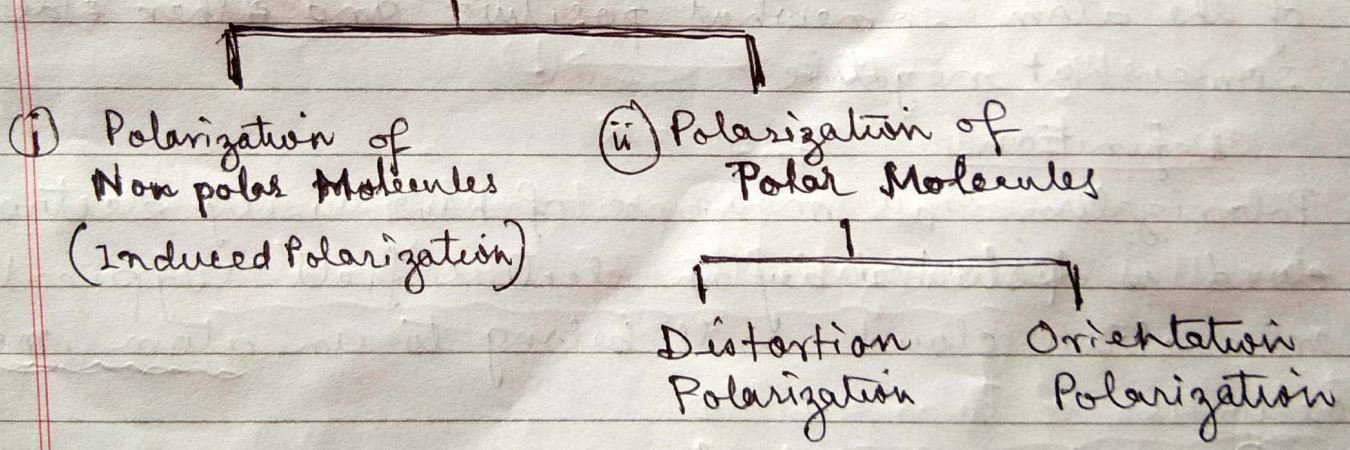 i Polarization of
Non polar Molecules
(Induced Polarization)
ii Polarization of
Polar Molecules
Distortion
Polarization
Orientation
Polarization